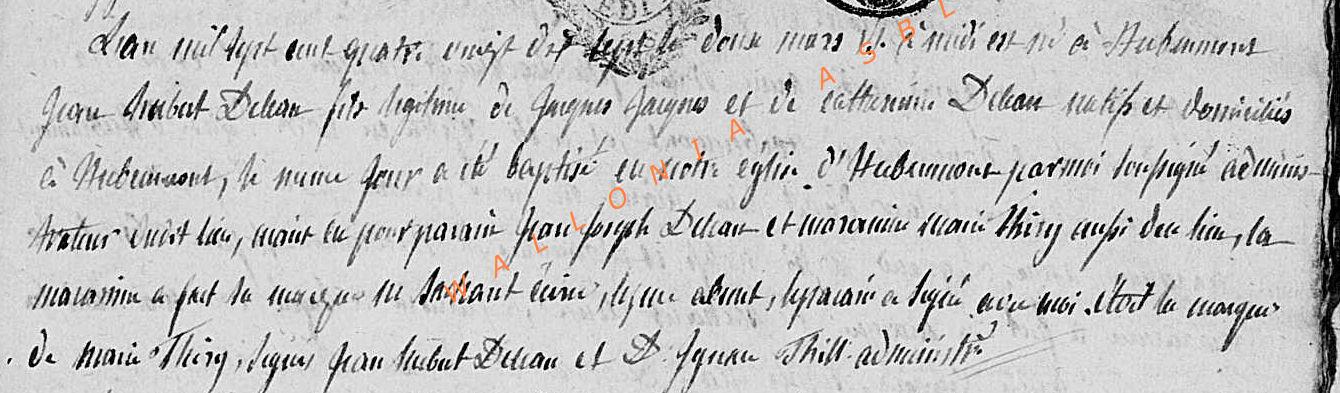 L'an mil sept cent quatre vingt dix sept le douze mars à midi est né à Hubermont
Jean hubert Dehan fils legitime de Jacques Jacques et de catherine Dehan natifs et domiciliés
à Hubermont, le meme jour a été baptisé en notre eglise d'Hubermont par moi soussigné adminis-
trateur dudit lieu, aiant eu pour parain Jean Joseph Dehan et maraine marie Thiry aussi du lieu, la
maraine a fait sa marque ne sachant écrire, le parain a signé avec moi. étoit la marque
de marie Thiry, signés Jean hubert Dehan et D. Thill administr
WALLONIA ASBL